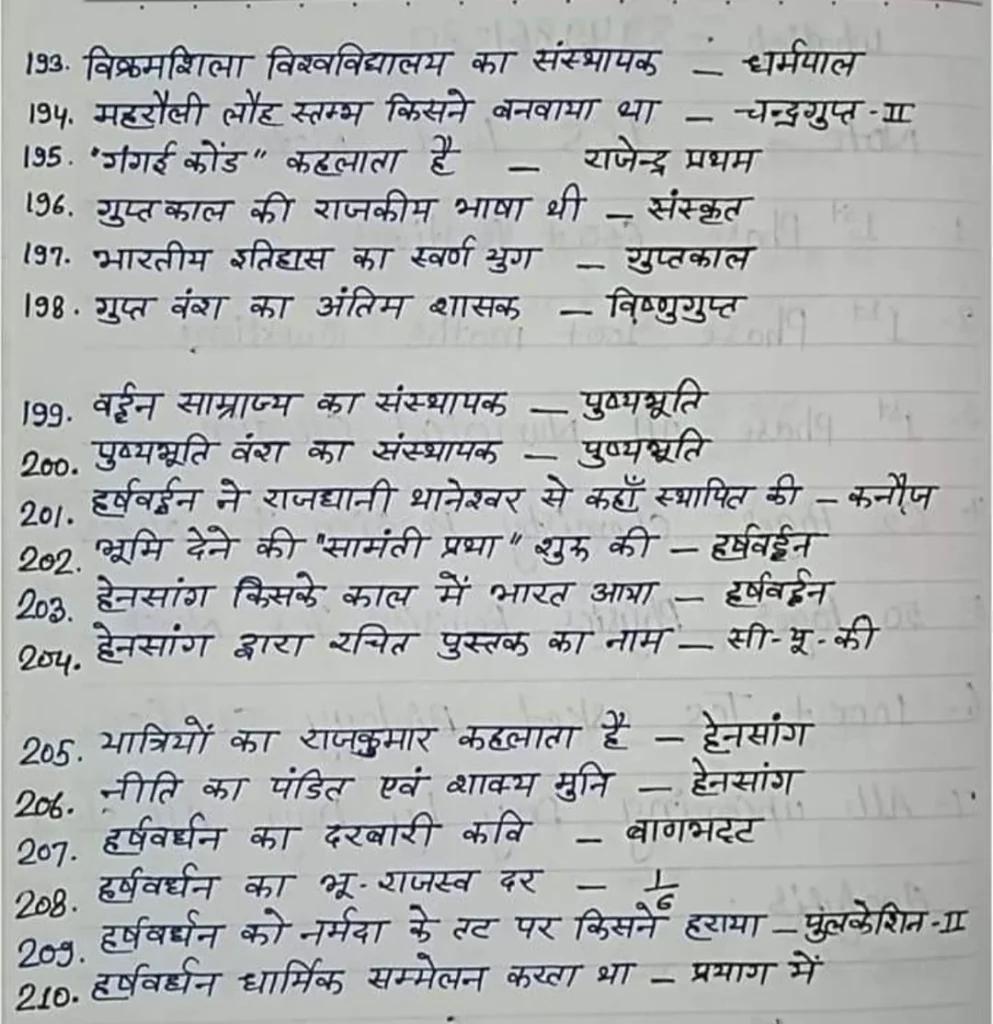 193. विक्रमशिला विश्वविद्यालय का संस्थापक – धर्मपाल
194. महरौली लौह स्तम्भ किसने बनवाया था – चन्द्रगुप्त-II
195. "गंगई कोंड" कहलाता है – राजेन्द्र प्रथम
196. गुप्तकाल की राजकीय भाषा थी – संस्कृत
197. भारतीय इतिहास का स्वर्ण युग – गुप्तकाल
198. गुप्त वंश का अंतिम शासक – विष्णुगुप्त
199. वर्द्धन साम्राज्य का संस्थापक – पुष्यभूति
200. पुष्यभूति वंश का संस्थापक – पुष्यभूति
201. हर्षवर्द्धन ने राजधानी थानेश्वर से कहाँ स्थापित की – कनौज
202. भूमि देने की "सामंती प्रथा" शुरू की – हर्षवर्द्धन
203. हेनसांग किसके काल में भारत आया – हर्षवर्द्धन
204. हेनसांग द्वारा रचित पुस्तक का नाम – सी-यू-की
205. यात्रियों का राजकुमार कहलाता है – हेनसांग
206. नीति का पंडित एवं शाक्य मुनि – हेनसांग
207. हर्षवर्धन का दरबारी कवि – बाणभट्ट
208. हर्षवर्धन का भू-राजस्व दर – 1/6
209. हर्षवर्धन को नर्मदा के तट पर किसने हराया – पुलकेशिन-II
210. हर्षवर्धन धार्मिक सम्मेलन करता था – प्रयाग में